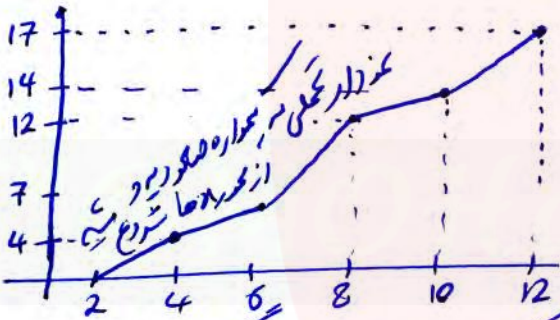 17
14
12
7
4
نمودار تجمعی همواره صعودیه و
از محور xها شروع میشه
2 4 6 8 10 12